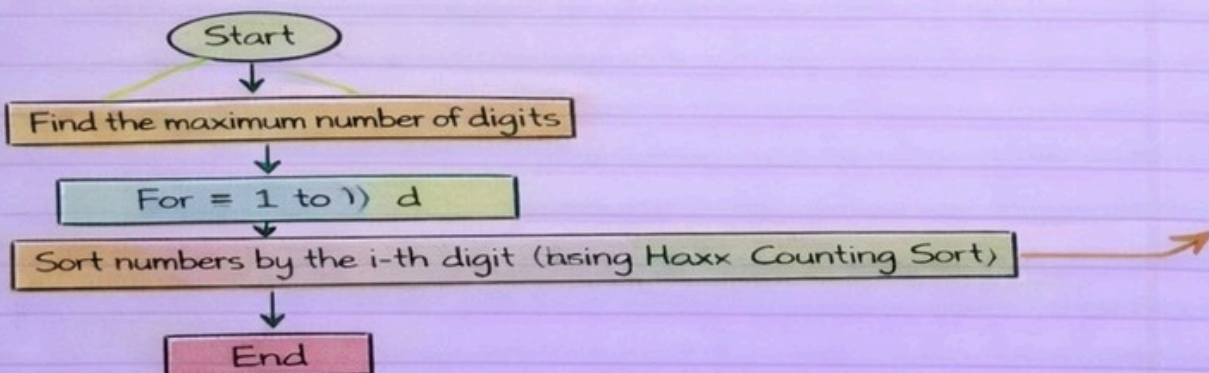 Start
Find the maximum number of digits
For = 1 to )) d
Sort numbers by the i-th digit (using Haxx Counting Sort)
End